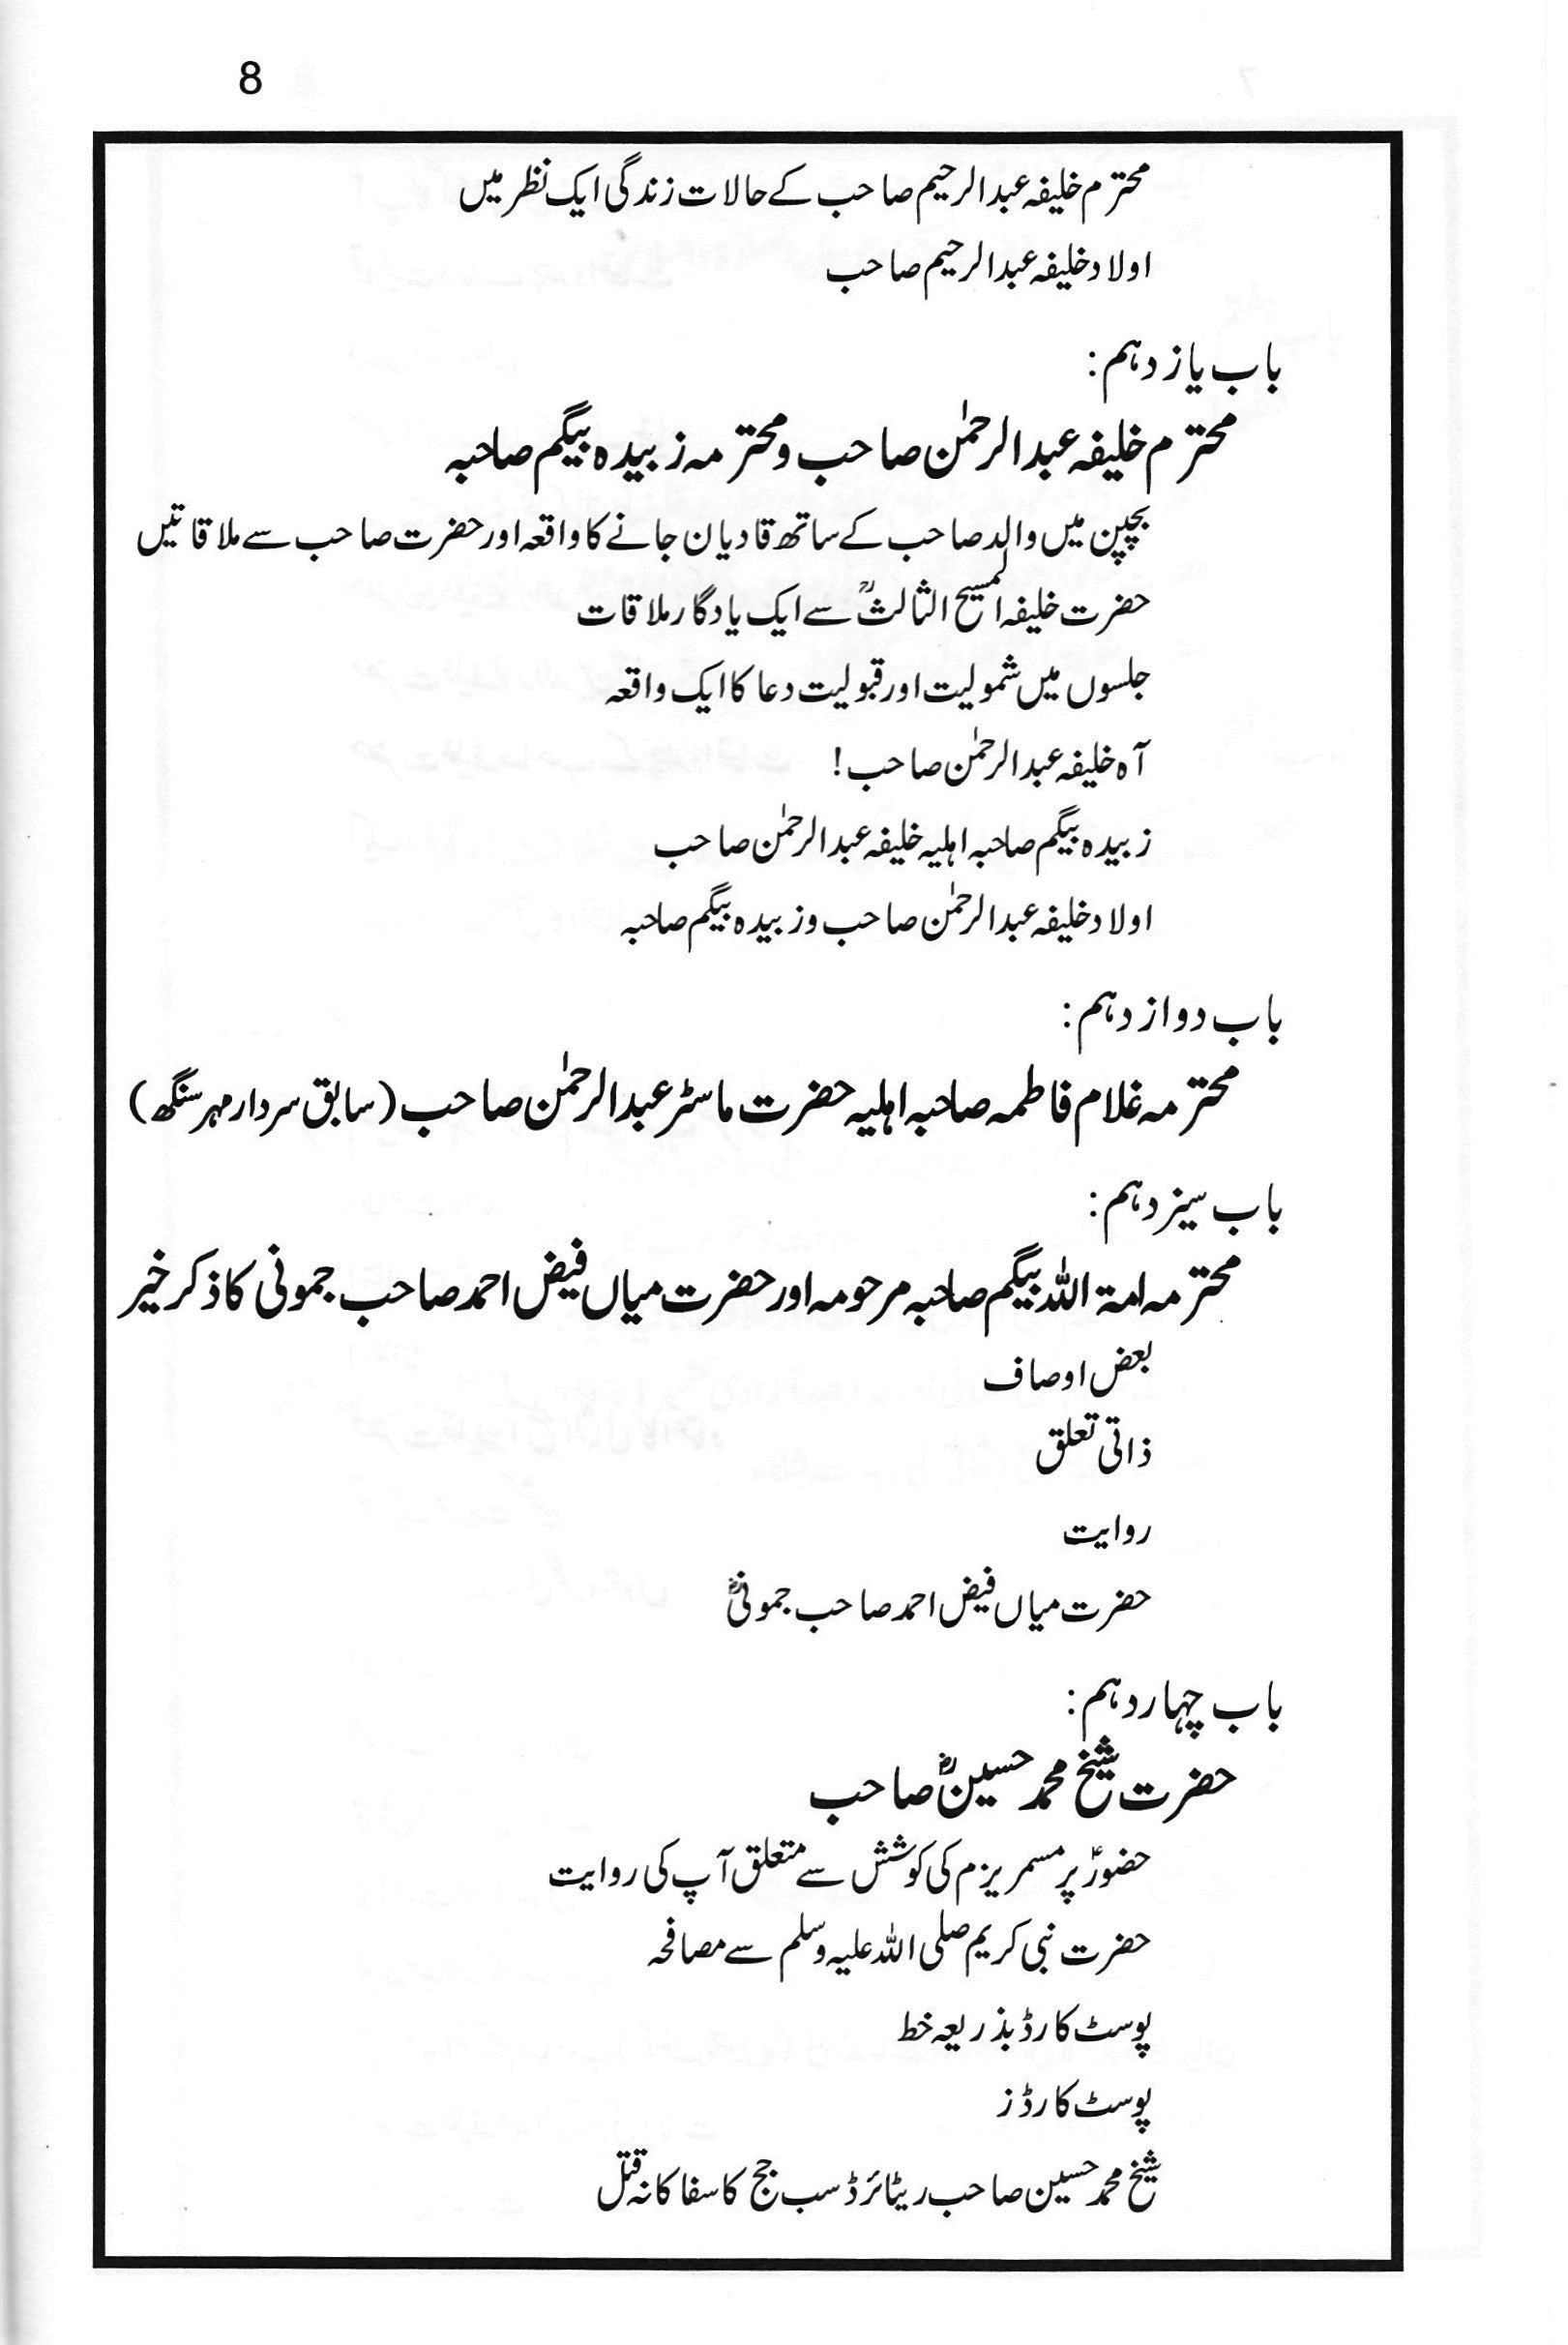 8
محترم خلیفہ عبدالرحیم صاحب کے حالات زندگی ایک نظر میں
اولاد خلیفہ عبدالرحیم صاحب
باب یازدہم:
محترم خلیفہ عبدالرحمٰن صاحب و محترمہ زبیدہ بیگم صاحبہ
بچپن میں والد صاحب کے ساتھ قادیان جانے کا واقعہ اور حضرت صاحب سے ملاقاتیں
حضرت خلیفۃ المسیح الثالثؒ سے ایک یادگار ملاقات
جلسوں میں شمولیت اور قبولیت دعا کا ایک واقعہ
آہ خلیفہ عبدالرحمٰن صاحب!
زبیدہ بیگم صاحبہ اہلیہ خلیفہ عبدالرحمٰن صاحب
اولاد خلیفہ عبدالرحمٰن صاحب و زبیدہ بیگم صاحبہ
باب دوازدہم:
محترمہ غلام فاطمہ صاحبہ اہلیہ حضرت ماسٹر عبدالرحمٰن صاحب (سابق سردار مہر سنگھ)
باب سیزدہم:
محترمہ امۃ اللہ بیگم صاحبہ مرحومہ اور حضرت میاں فیض احمد صاحب جمونی کا ذکر خیر
بعض اوصاف
ذاتی تعلق
روایت
حضرت میاں فیض احمد صاحب جمونیؓ
باب چہاردہم:
حضرت شیخ محمد حسینؓ صاحب
حضورؑ پر مسمریزم کی کوشش سے متعلق آپ کی روایت
حضرت نبی کریم صلی اللہ علیہ وسلم سے مصافحہ
پوسٹ کارڈ بذریعہ خط
پوسٹ کارڈز
شیخ محمد حسین صاحب ریٹائرڈ سب جج کا سفاکانہ قتل